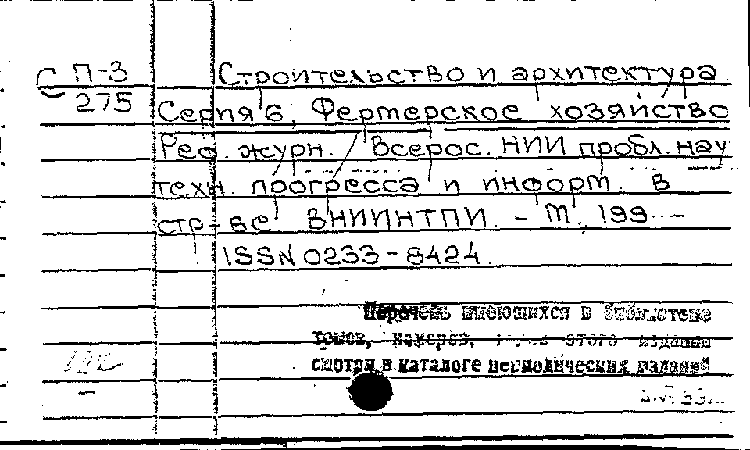 С П-3 Строительство и архитектура
275 Серия 6, Фермерское хозяйство
Реф. журн. / Всерос. НИИ пробл. науч
техн. прогресса и информ. в
стр-ве ВНИИНТПИ. - М, 199 -
ISSN 0233-8424.
Перечень имеющихся в библиотеке
томов, номеров, этого издания
смотри в каталоге периодических изданий